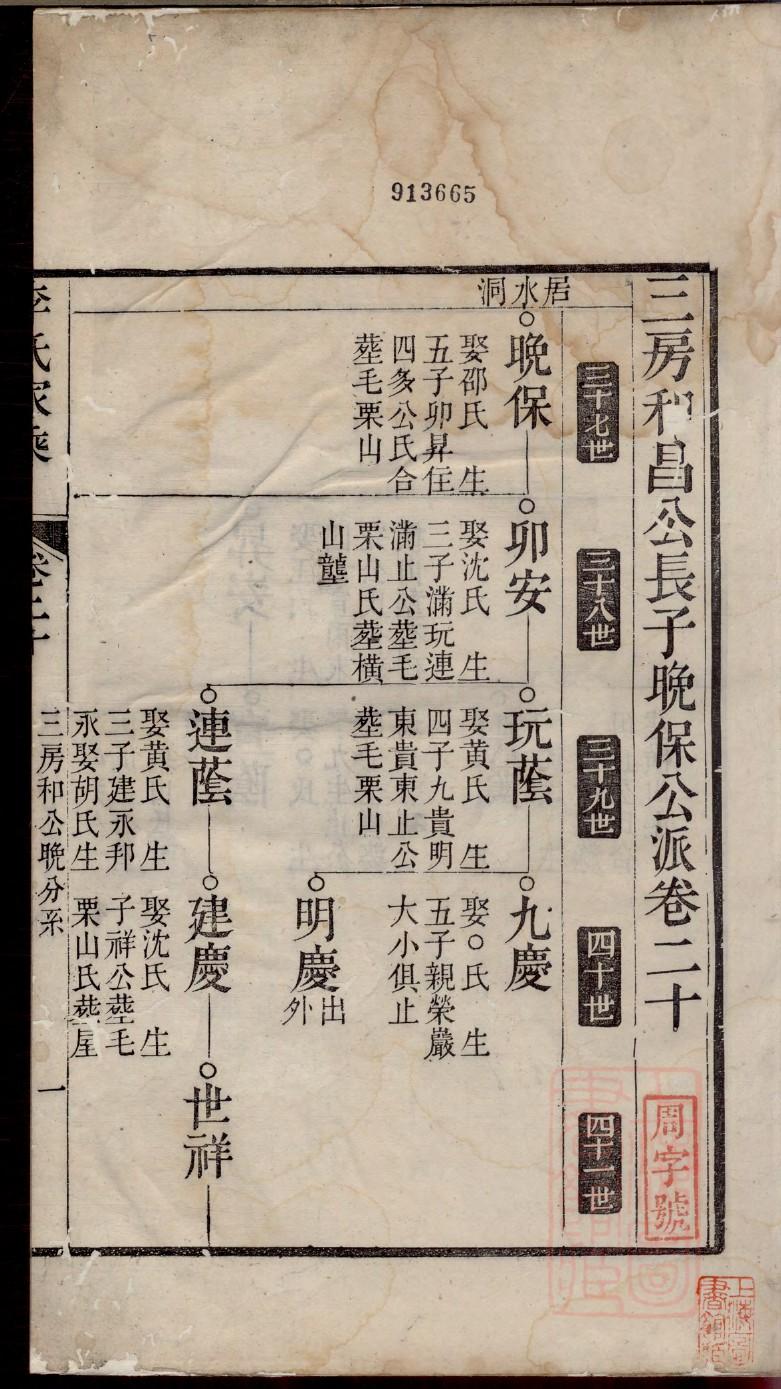 913665
三房和昌公長子晚保公派卷二十
周字號
三十七世
三十八世
三十九世
四十世
四十一世
居水洞
晚保
娶邵氏 生
五子卯昇仼
四多公氏合
塟毛栗山
卯安
娶沈氏 生
三子滿玩連
滿止公塟毛
栗山氏塟橫
山𨻫
玩蔭
娶黃氏 生
四子九貴明
東貴東止公
塟毛栗山
九慶
娶○氏 生
五子親榮嚴
大小俱止
明慶
出
外
連蔭
娶黃氏 生
三子建永邦
永娶胡氏生
建慶
娶沈氏 生
子祥公塟毛
栗山氏塟屋
世祥
李氏家乘
卷二十
三房和公晚分系
一
上海圖
書館藏